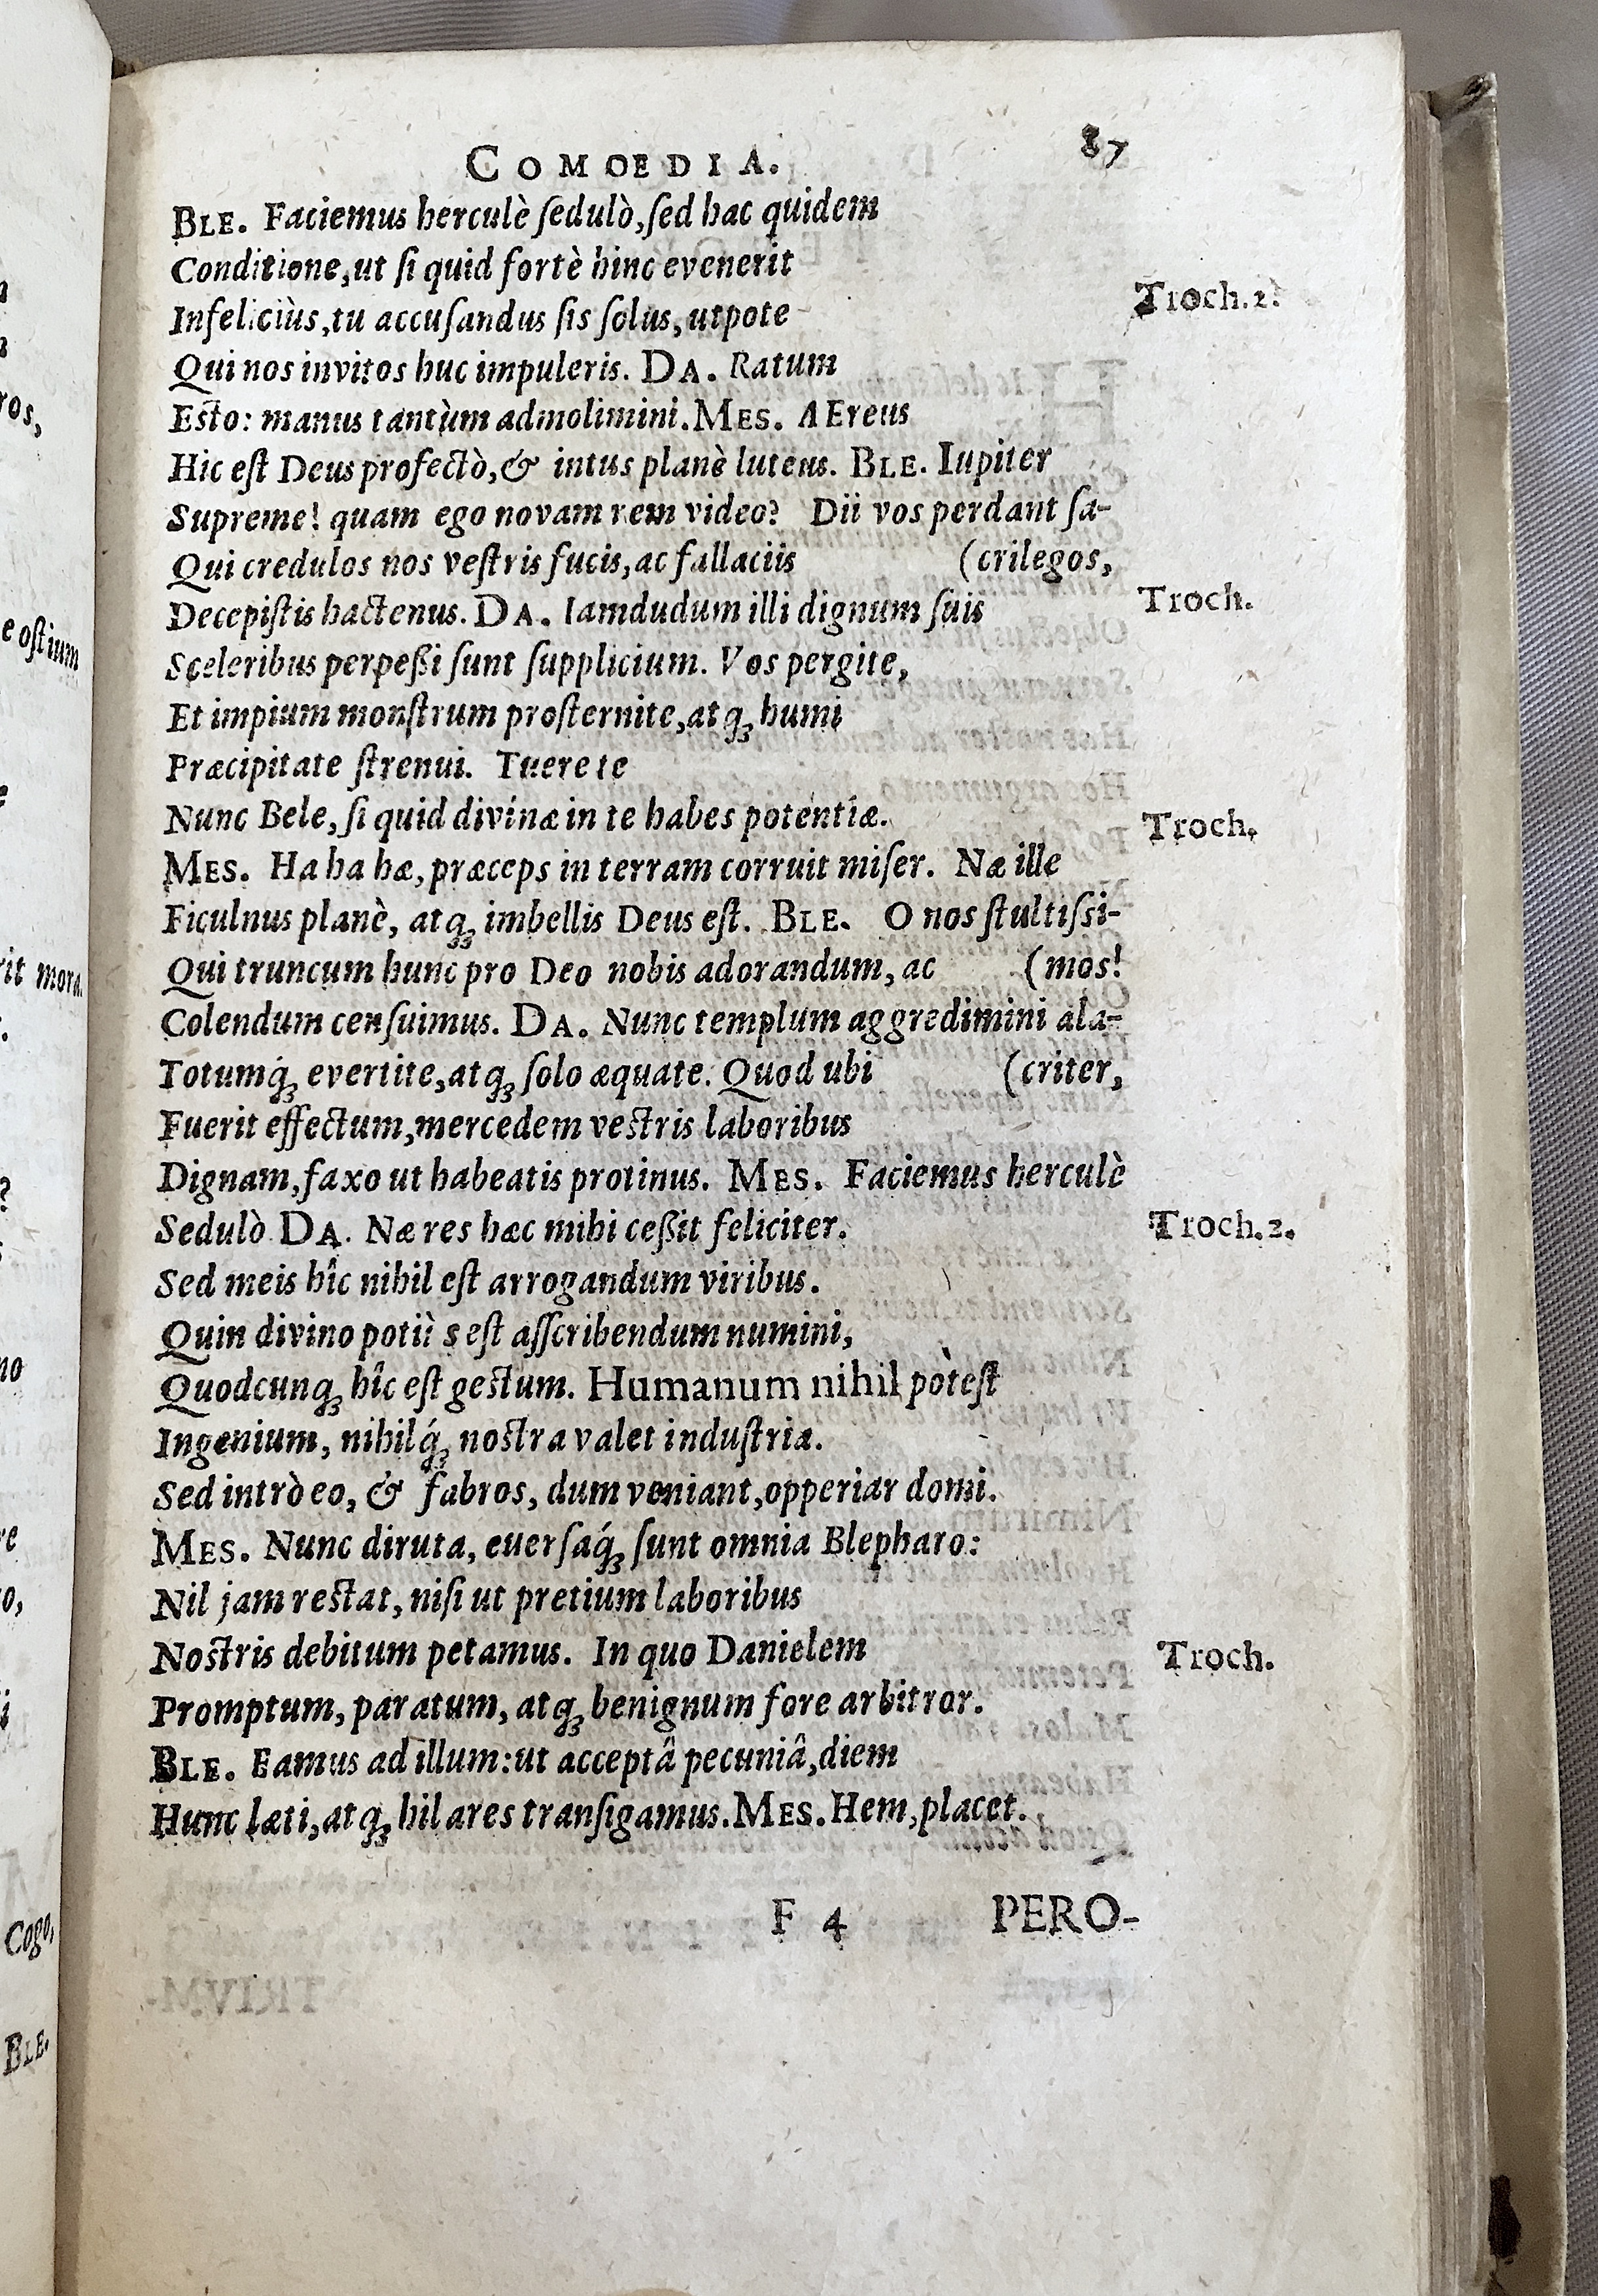 COMOEDIA. 87
BLE. Faciemus herculè ſedulò, ſed hac quidem
Conditione, ut ſi quid fortè hinc evenerit
Infeliciùs, tu accuſandus ſis ſolus, utpote Troch. 2.
Qui nos invitos huc impuleris. DA. Ratum
Eſto: manus tantùm admolimini. MES. AEreus
Hic eſt Deus profectò, & intus planè luteus. BLE. Iupiter
Supreme! quam ego novam rem video? Dii vos perdant ſa-
Qui credulos nos veſtris fucis, ac fallaciis (crilegos,
Decepiſtis hactenus. DA. Iamdudum illi dignum ſuis Troch.
Sceleribus perpeßi ſunt ſupplicium. Vos pergite,
Et impium monſtrum proſternite, atq; humi
Præcipitate ſtrenui. Tuere te
Nunc Bele, ſi quid divinæ in te habes potentiæ. Troch.
MES. Ha ha hæ, præceps in terram corruit miſer. Næ ille
Ficulnus planè, atq; imbellis Deus eſt. BLE. O nos ſtultiſsi-
Qui truncum hunc pro Deo nobis adorandum, ac (mos!
Colendum cenſuimus. DA. Nunc templum aggredimini ala-
Totumq́; evertite, atq; ſolo æquate. Quod ubi (criter,
Fuerit effectum, mercedem veſtris laboribus
Dignam, faxo ut habeatis protinus. MES. Faciemus herculè
Sedulò DA. Næ res hæc mihi ceßit feliciter. Troch. 2.
Sed meis hîc nihil eſt arrogandum viribus.
Quin divino potiùs eſt aſſcribendum numini,
Quodcunq; hîc eſt geſtum. Humanum nihil pòteſt
Ingenium, nihilq́; noſtra valet induſtria.
Sed intrò eo, & fabros, dum veniant, opperiar domi.
MES. Nunc diruta, euerſaq́; ſunt omnia Blepharo:
Nil jam reſtat, niſi ut pretium laboribus
Noſtris debitum petamus. In quo Danielem Troch.
Promptum, paratum, atq; benignum fore arbitror.
BLE. Eamus ad illum: ut acceptâ pecuniâ, diem
Hunc læti, atq; hilares tranſigamus. MES. Hem, placet.
F 4 PERO-
ros,
e oſtium
rit mora.
Cogo,
BLE.